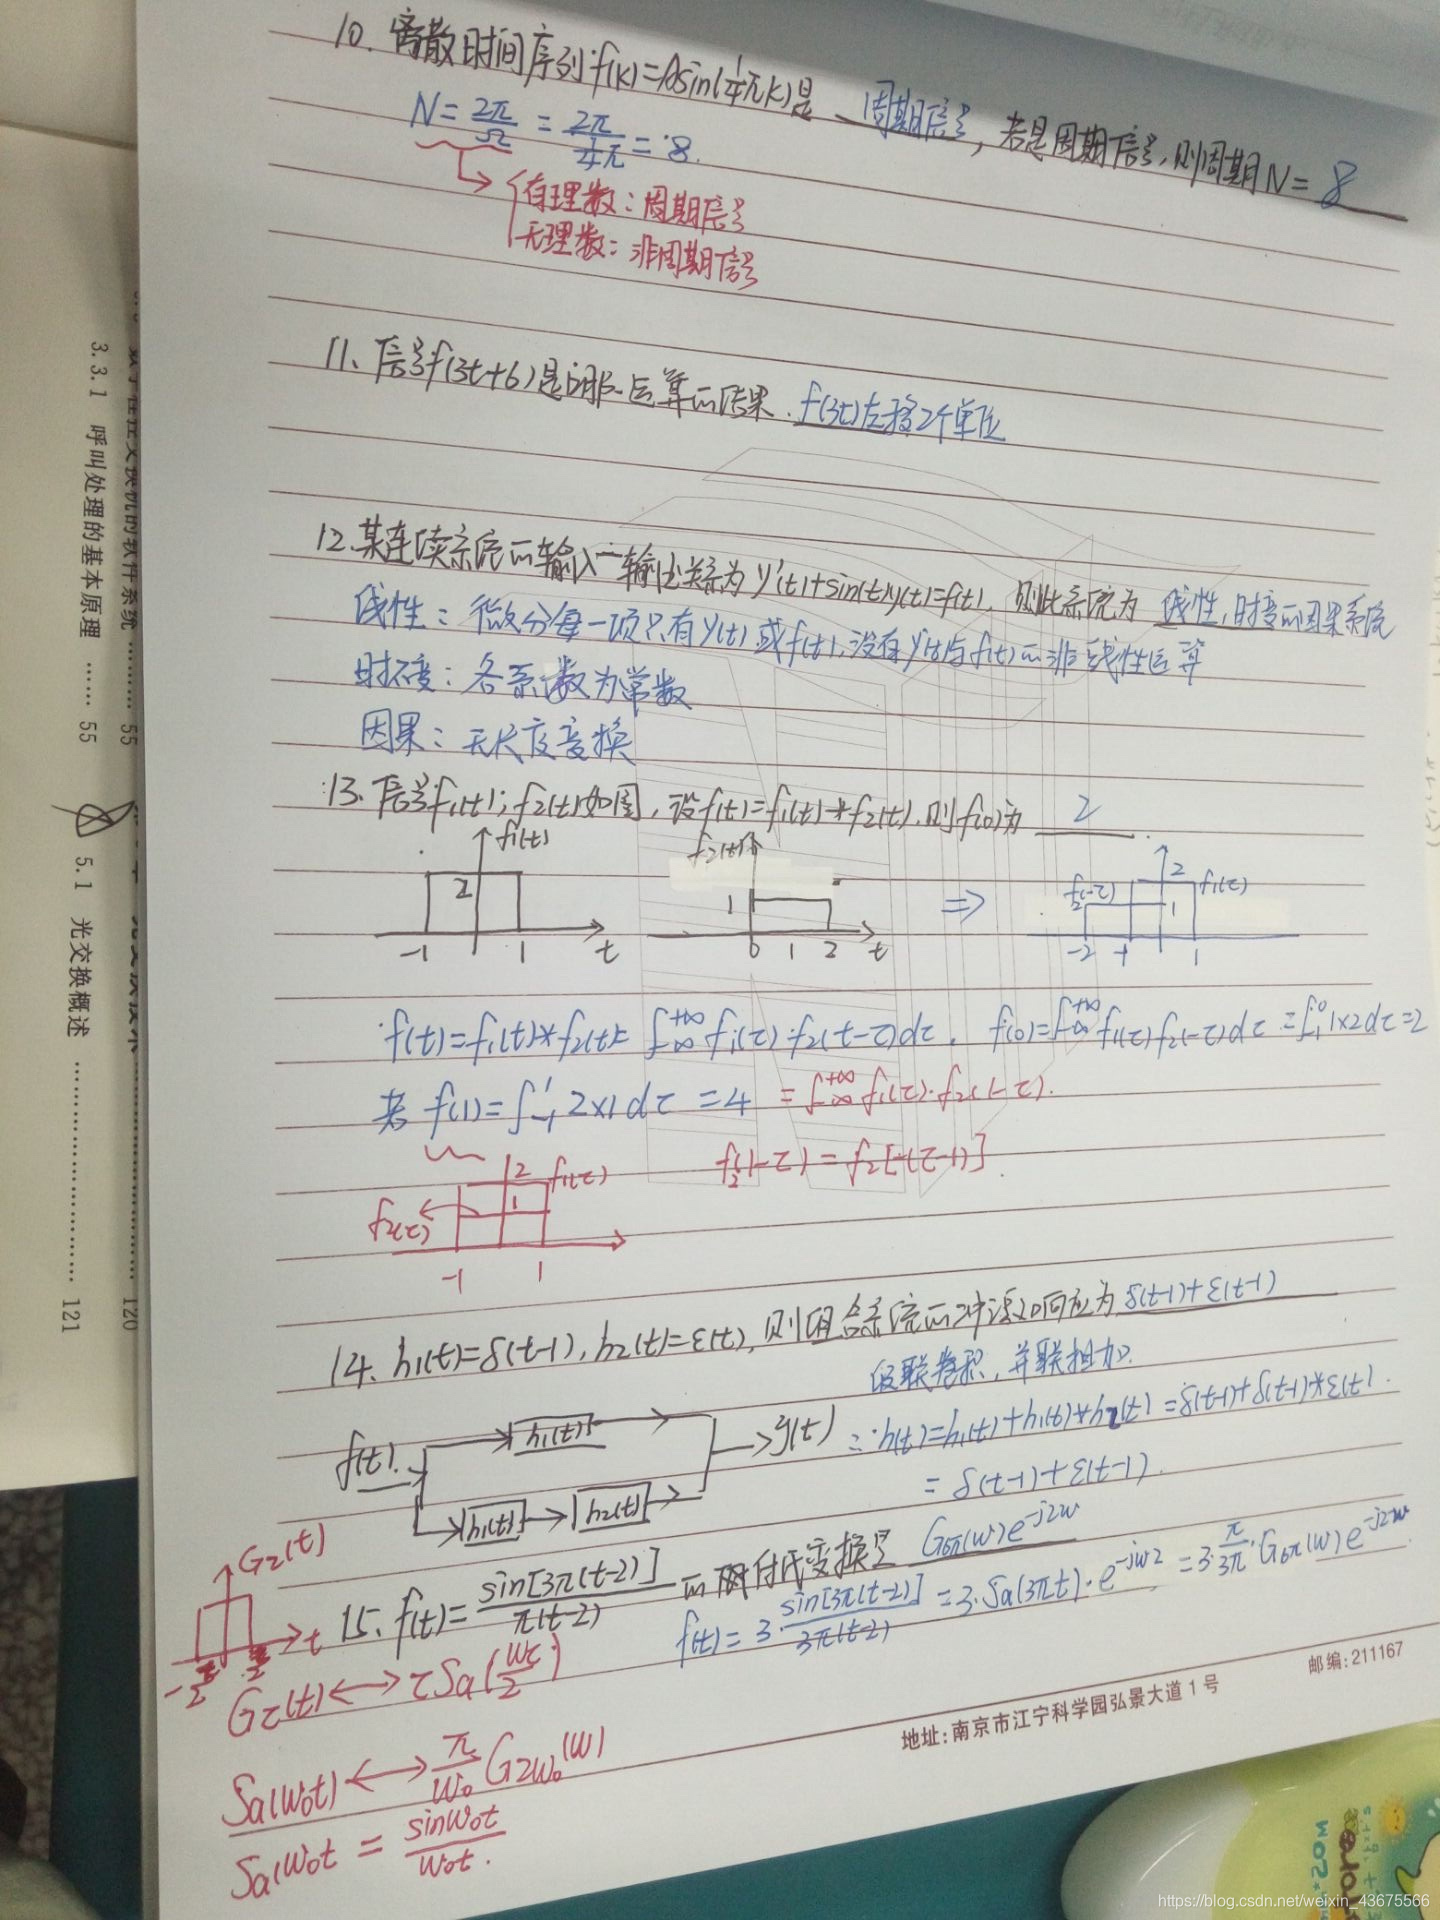 10. 离散时间序列f(k)=Asin(1/4πk)是 周期信号, 若是周期信号,则周期N= 8
N=2π/Ω = 2π/(1/4π) = 8.
有理数:周期信号
无理数:非周期信号
11、信号f(3t+6)是 运算的结果. f(3t)左移2个单位
12.某连续系统的输入一输出关系为y'(t)+sin(t)y(t)=f(t), 则此系统为 线性,时变的因果系统
线性: 微分每一项只有y(t)或f(t),没有y(t)与f(t)的非线性运算
时不变: 各系数为常数
因果: 无尺度变换
13. 信号f1(t),f2(t)如图,设f(t)=f1(t)*f2(t).则f(0)为 2
f1(t)
2
-1 1 t
f2(t)
1
0 1 2 t
=>
f2(-τ) 2 f1(τ)
1
-2 -1 1
f(t)=f1(t)*f2(t)= ∫-∞+∞ f1(τ)·f2(t-τ)dτ, f(0)=∫-∞+∞ f1(τ)f2(-τ)dτ=∫-1 0 1×2dτ=2
若 f(1)=∫-1 1 2×1dτ =4 =∫-∞+∞ f1(τ)·f2(1-τ).
f2(1-τ)=f2[-(τ-1)]
2 f1(τ)
1
f2(τ)
-1 1
14、h1(t)=δ(t-1),h2(t)=ε(t),则组合系统的冲激响应为 δ(t-1)+ε(t-1)
级联卷积,并联相加.
f(t) h1(t) y(t)
h1(t) h2(t)
∴h(t)=h1(t)+h1(t)*h2(t)=δ(t-1)+δ(t-1)*ε(t).
=δ(t-1)+ε(t-1).
15、f(t)=sin[3π(t-2)]/π(t-2) 的 付氏变换是 G6π(w)e^-j2w
f(t)=3·sin[3π(t-2)]/3π(t-2) =3·Sa(3πt)·e^-jw2 =3·π/3π·G6π(w)e^-j2w
Gτ(t)
-τ/2 τ/2 t
Gτ(t)↔τSa(wτ/2)
Sa(w0t)↔π/w0 G2w0(w)
Sa(w0t = sinw0t/w0t.
地址:南京市江宁科学园弘景大道1号
邮编:211167
3.3.1 呼叫处理的基本原理 …… 55
55
5.1 光交换概述 …… 121
120
https://blog.csdn.net/weixin_43675566